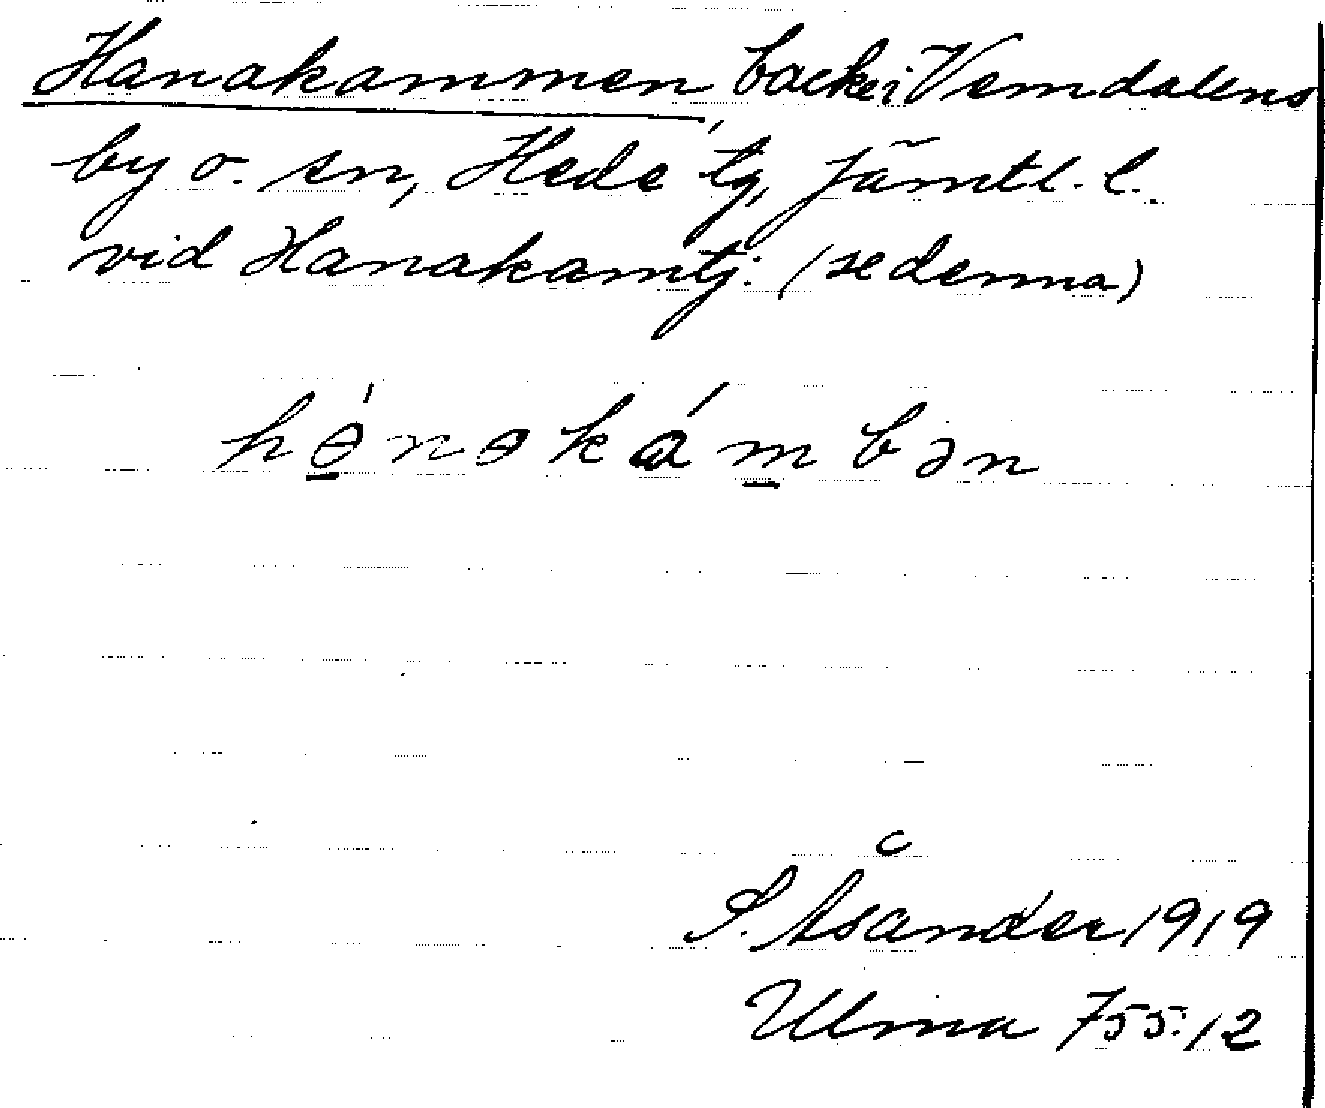 Hanakammen, backe i Vemdalens
by o. sn, Hede tg, Jämtl. l.
vid Hanakamtj. (se denna)
hɵ́nɵkámbən
S. Åsander 1919
Ulma 755:12